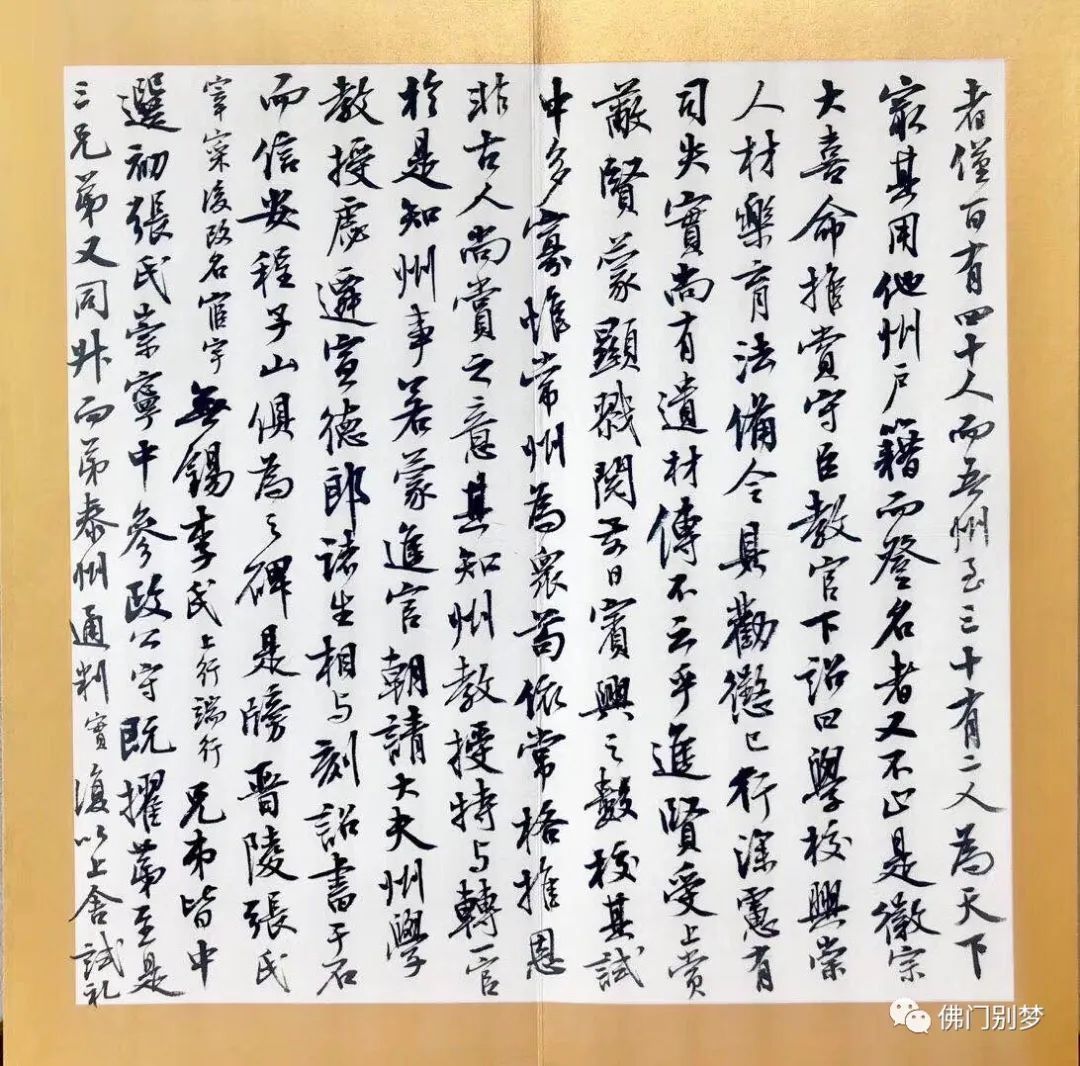 者僅百有四十人而吾州至三十有二人為天下
最其用他州戶籍而登名者又不止是徽宗
大喜命推賞守臣教官下詔曰學校興崇
人材樂育法備令具勸懲已行深慮有
司失實尚有遺材傳不云乎進賢受上賞
蔽賢蒙顯戮閱前日賓興之數校其試
中多寡惟常州為眾若依常格推恩
非古人尚賞之意其知州教授特与轉一官
於是知州事若蒙進官朝請大夫州學
教授處遯宣德郎諸生相与刻詔書于石
而信安程子山俱為之碑是牓晋陵張氏
宰寀後改名宦宇無錫李氏上行端行兄弟皆中
選初張氏崇寧中參政公守既擢第至是
三兄弟又同升而弟泰州通判寳復以上舍試礼
佛门别梦